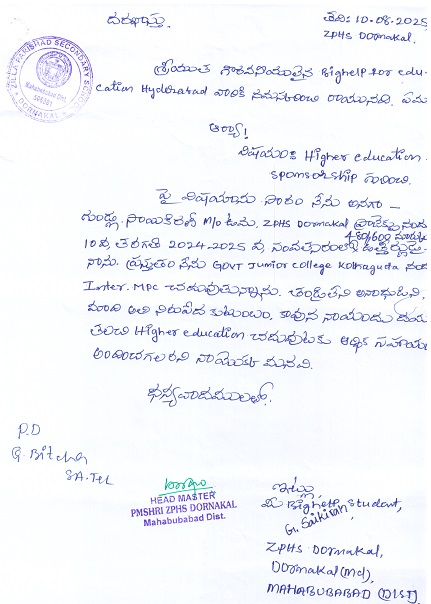 దరఖాస్తు.
తేది: 10-08-2025
ZPHS Dornakal.
ZILLA PARISHAD SECONDARY SCHOOL
Mahabubabad Dist.
506381
DORNAKAL
శ్రీయుత గౌరవనీయులైన Bighelp for edu-
cation Hyderabad వారికి నమస్కరించి రాయునది. ఏమ
ఆర్యా!
విషయం: Higher education-
sponsorship గురించి.
పై విషయాను సారం నేను అనగా -
గుండ్ల సాయికిరణ్ M/o ఉమ. ZPHS Dornakal నందు
480/600 మార్కు
10వ తరగతి 2024-2025 వ సంవత్సరంలో ఉత్తీర్ణుడై-
నాను. ప్రస్తుతం నేను GOVT Junior college నంద
Inter. MPC చదువుతున్నాను. తండ్రిలేని అనాధుడిని,
మాది అతి నిరుపేద కుటుంబం. కావున నాయందు దయ
తలచి Higher education చదువుటకు ఆర్థిక సహాయ
అందించగలరని నా యొక్క మనవి.
ధన్యవాదములతో.
P.D
SA.Tel
HEAD MASTER
PMSHRI ZPHS DORNAKAL
Mahabubabad Dist.
ఇట్లు,
మీ Bighelp student,
G. Saikiran,
ZPHS Dornakal,
Dornakal(md),
MAHABUBABAD (DIST).